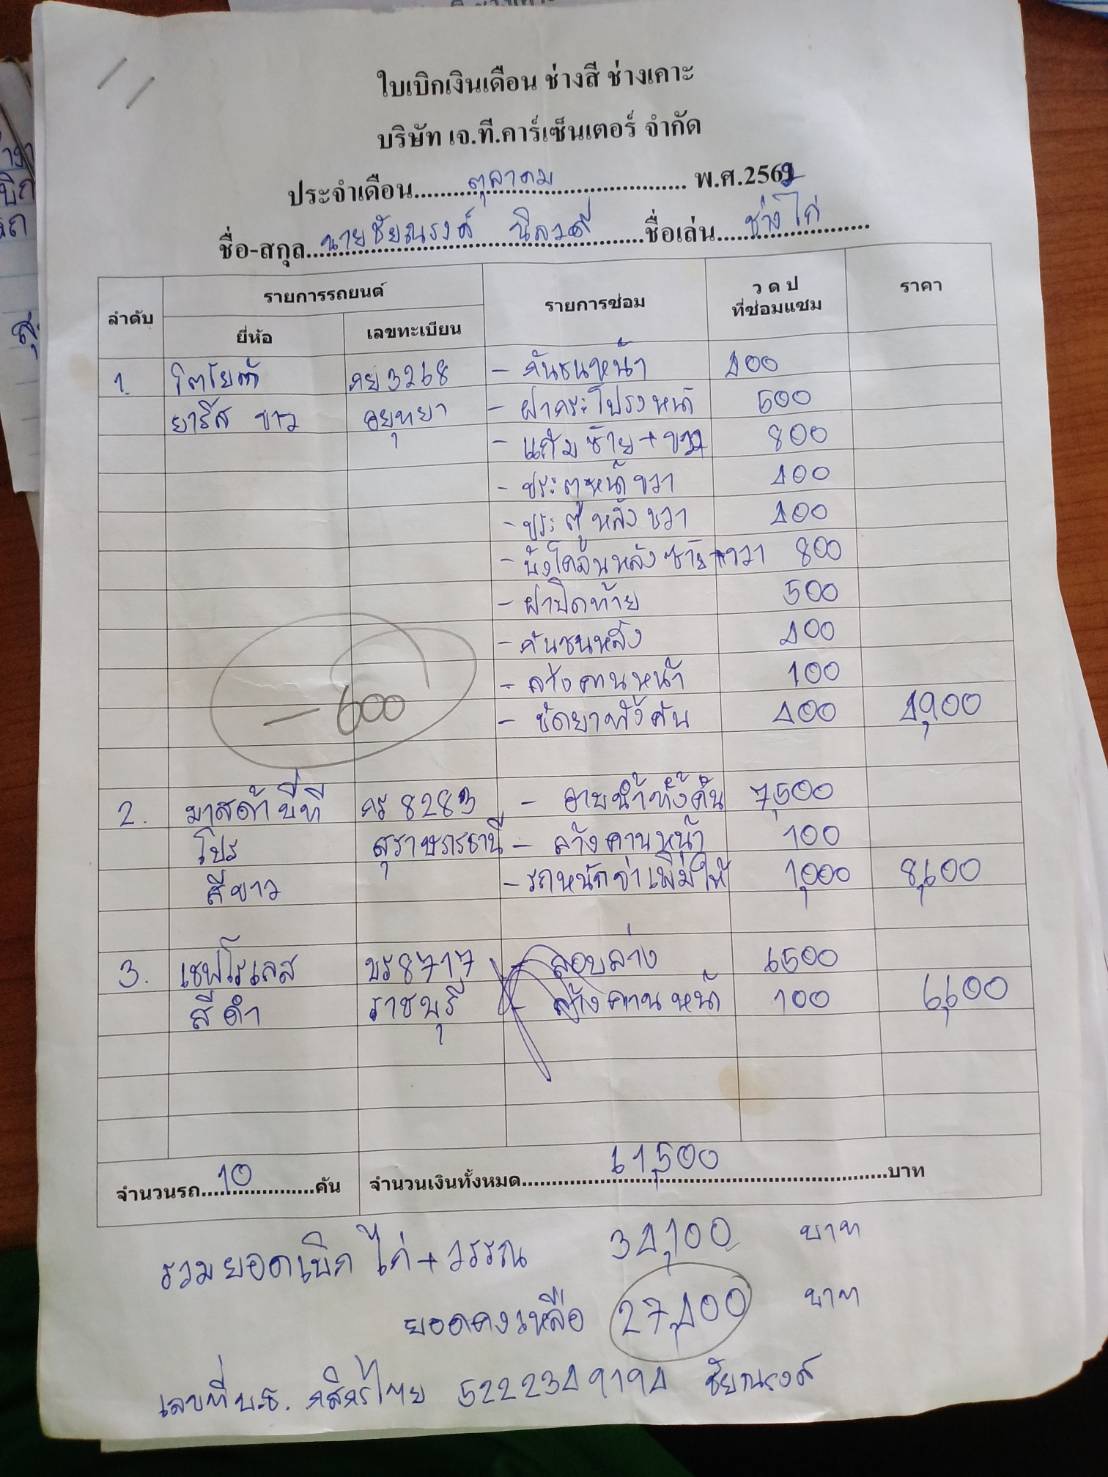 ใบเบิกเงินเดือน ช่างสี ช่างเคาะ
บริษัท เจ.ที.คาร์เซ็นเตอร์ จำกัด
ประจำเดือน......ตุลาคม...... พ.ศ.2562
ชื่อ-สกุล...นายชัยณรงค์ นิลวดี......ชื่อเล่น....ช่างไก่......
ลำดับ รายการรถยนต์ รายการซ่อม ว ด ป ที่ซ่อมแซม ราคา
ยี่ห้อ เลขทะเบียน
1. โตโยต้า กย 3268 - กันชนหน้า 400
ยารีส ขาว อยุทยา - ฝากระโปรงหน้า 500
- แก้มซ้าย+ขวา 800
- ประตูหน้าขวา 400
- ประตูหลังขวา 400
- บังโคลนหลังซ้าย+ขวา 800
- ฝาปิดท้าย 500
- กันชนหลัง 400
- ล้างคานหน้า 100
- 600
- ขัดยาทั้งคัน 400 4,900
2. มาสด้า บีที กร 8283 - อาบน้ำทั้งคัน 7,500
โปร สุราษภรธานี - ล้างคานหน้า 100
สีขาว - รถหนักจ่าเพิ่มให้ 1,000 8,600
3. เชฟโรเลส บร 8717 - สอบล่าง 6500
สีดำ ราชบุรี - ล้างคานหน้า 100 6,600
จำนวนรถ....10....คัน จำนวนเงินทั้งหมด......61,500......บาท
รวมยอดเบิก ไก่+วรรณ 34,100 บาท
ยอดคงเหลือ 27,400 บาท
เลขที่ บ.ช. กสิกรไทย 5222349194 ชัยณรงค์